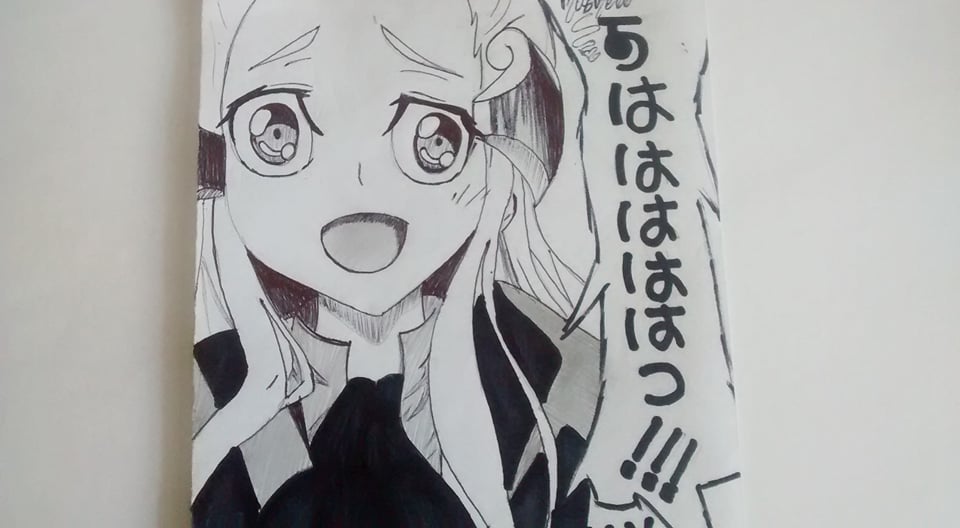 うはははははっ!!!